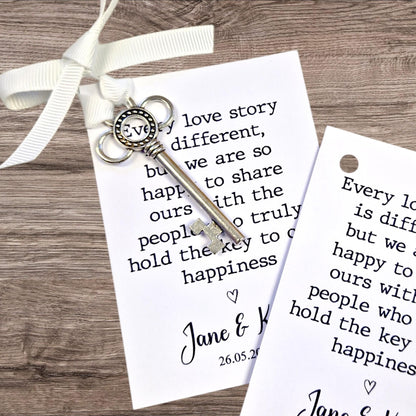 Every love story
different,
we are so
to share
ours with the
truly
hold the key to
happiness
Jane &
26.05.20
Every
is
but we are
happy to
ours with
people who
hold the key
happiness
Jane &